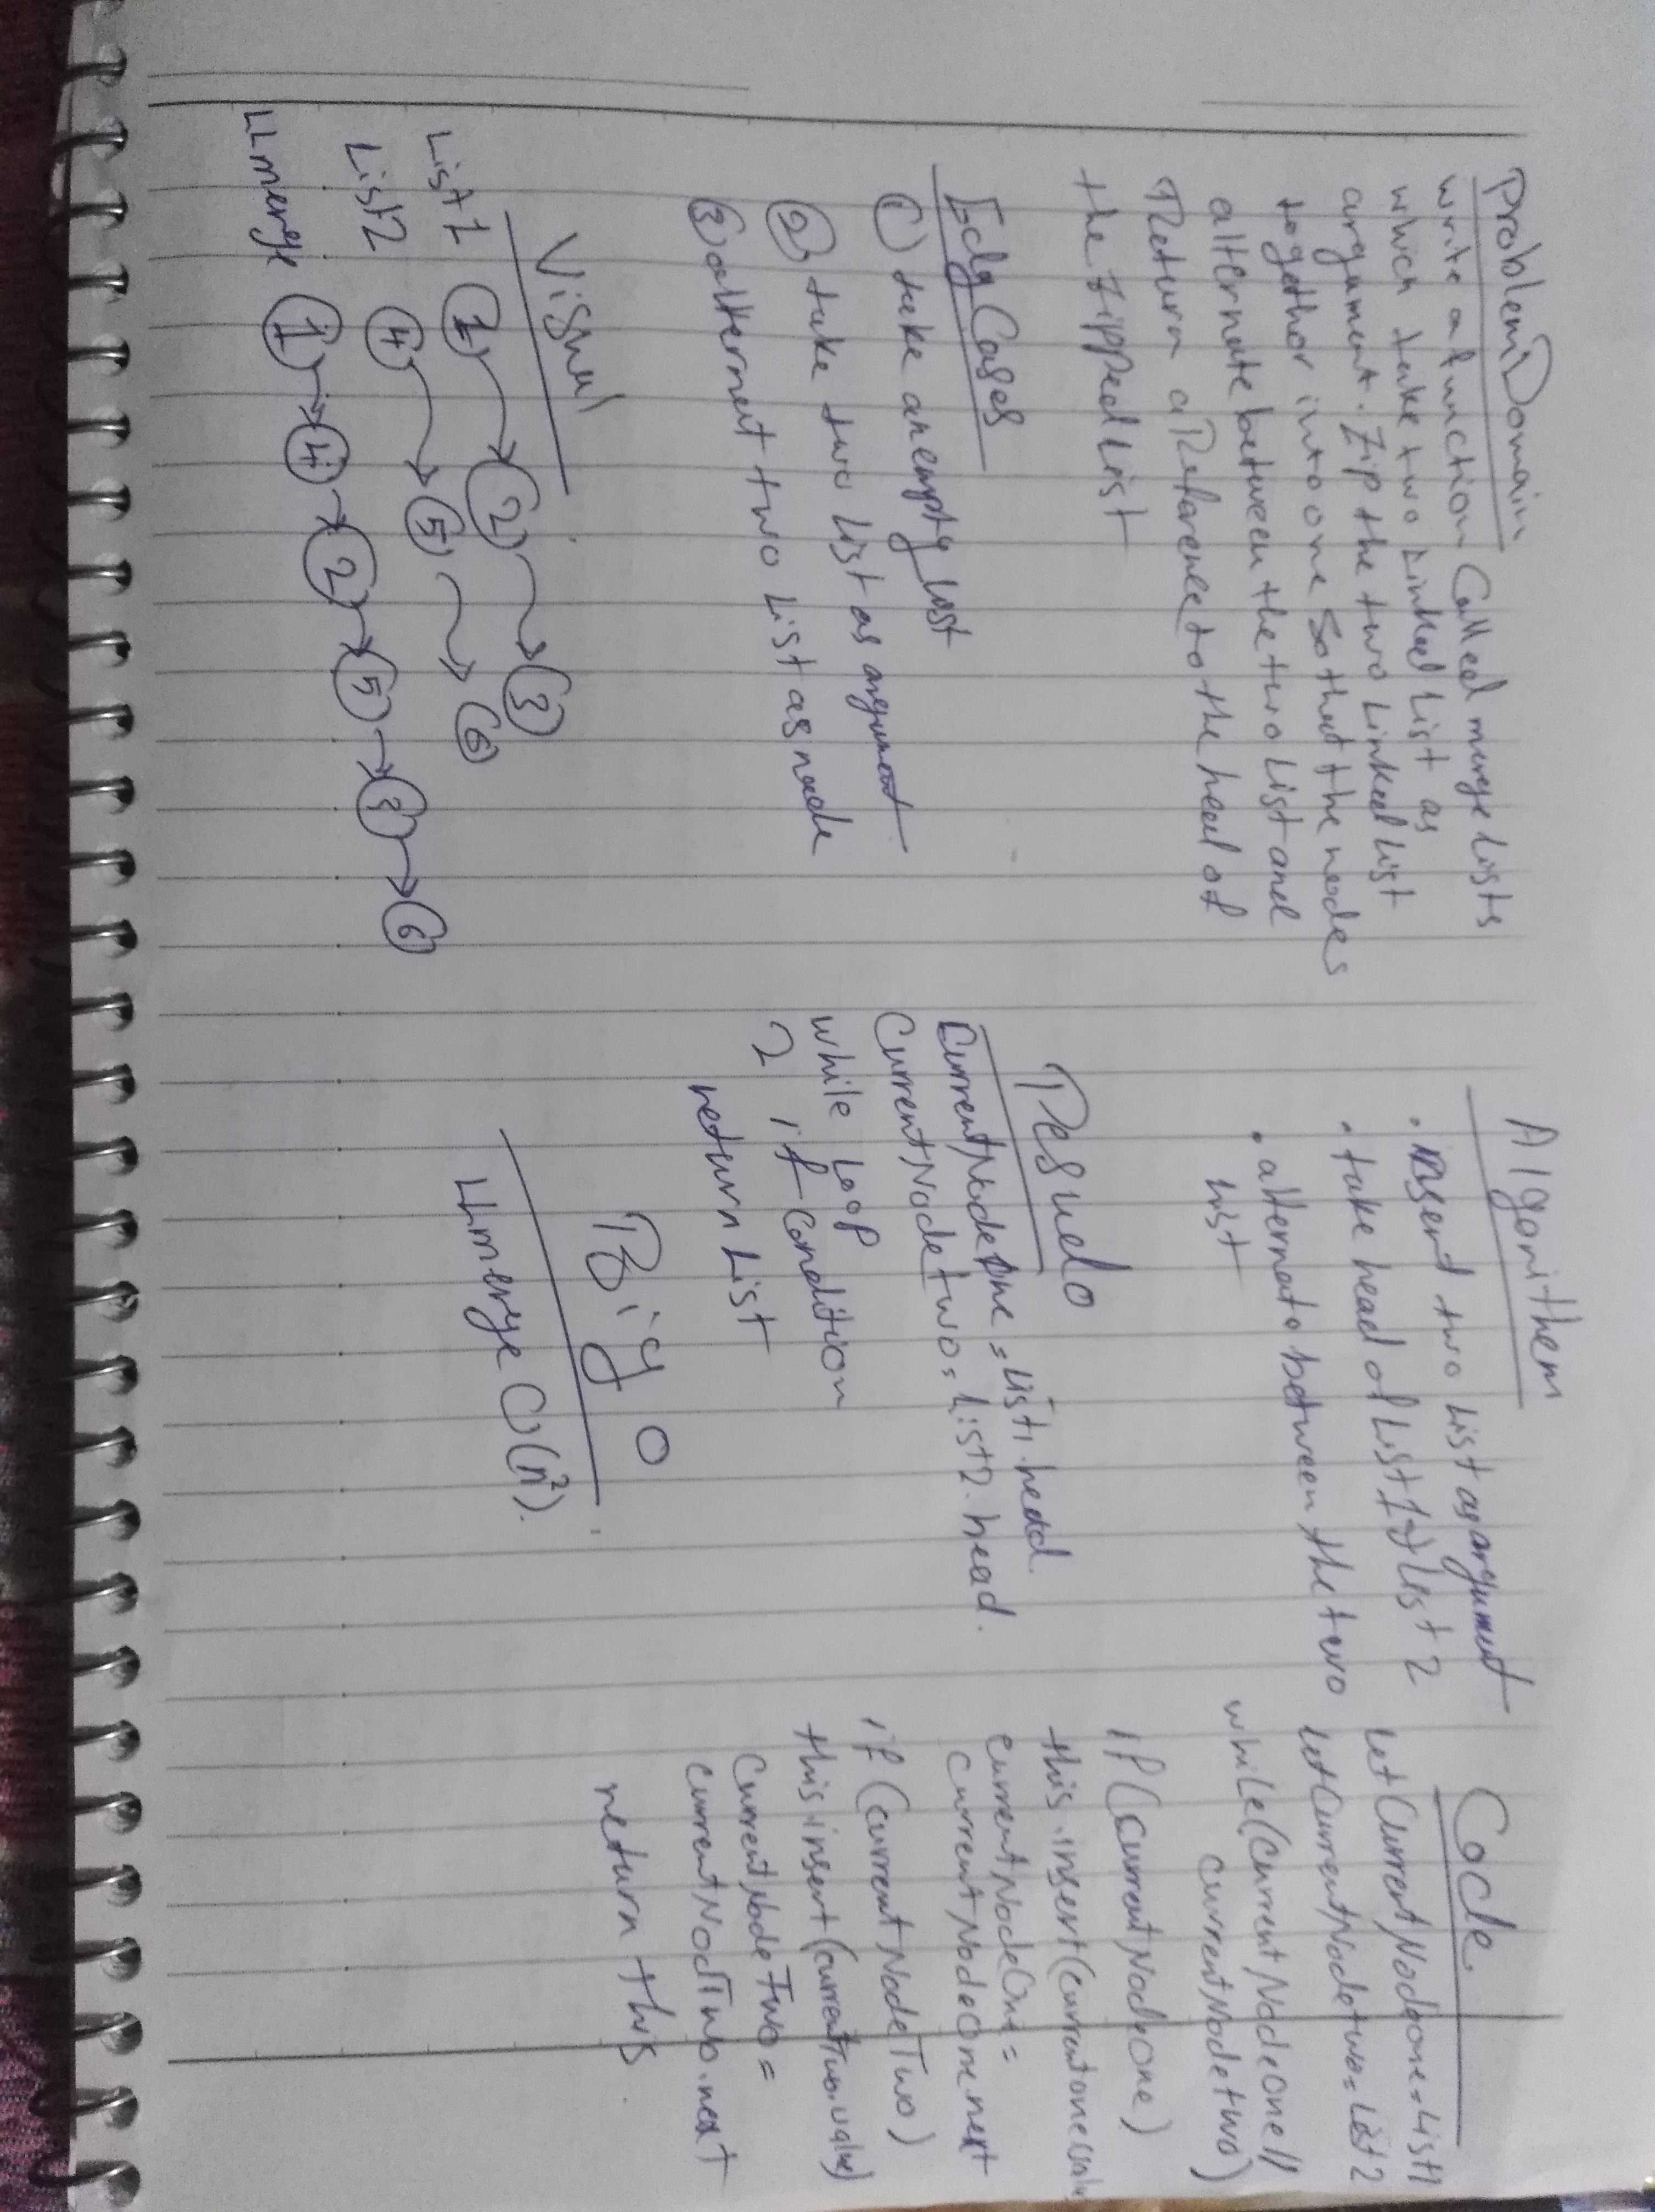 Problem Domain
write a function Called merge Lists
which take two Linked List as
argument. Zip the two Linked List
together into one so that the nodes
alternate between the two List and
Return a Reference to the head of
the zipped List
Edg Cases
① take an empty List
② take two List as argument
③ alternat two List as node
Visual
List 1 1 2 3
List 2 4 5 6
LL merge 1 4 2 5 3 6
Algorithem
• insert two List as argument
• take head of List 1 → List 2
• alternato between the two
List
Pesudo
CurrentNodeOne = List1.head
CurrentNodetwo = List2.head.
while Loop
2 if Condition
return List
Big O
LLmerge O(n²).
Code
let CurrentNodeone = List1
let CurrentNodetwo = List2
while (CurrentNodeone ||
currentNodetwo)
if (currentNodeone)
this.insert(currentone
currentNodeOne =
currentNodeOne.next
if (currentNodeTwo)
this.insert(currentTwo.value)
CurrentNodeTwo =
currentNodTwo.next
return this.